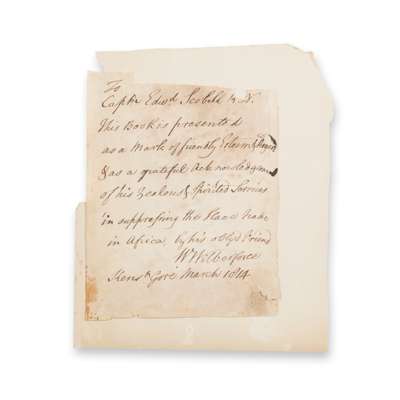 To
Captn Edwd Scobell R. N.
This Book is presented
as a Mark of friendly Esteem & Regard
& as a grateful Acknowledgment
of his Zealous & Spirited Services
in suppressing the Slave Trade
in Africa, by his oblig'd Friend
W Wilberforce
Kensn Gore March 1814